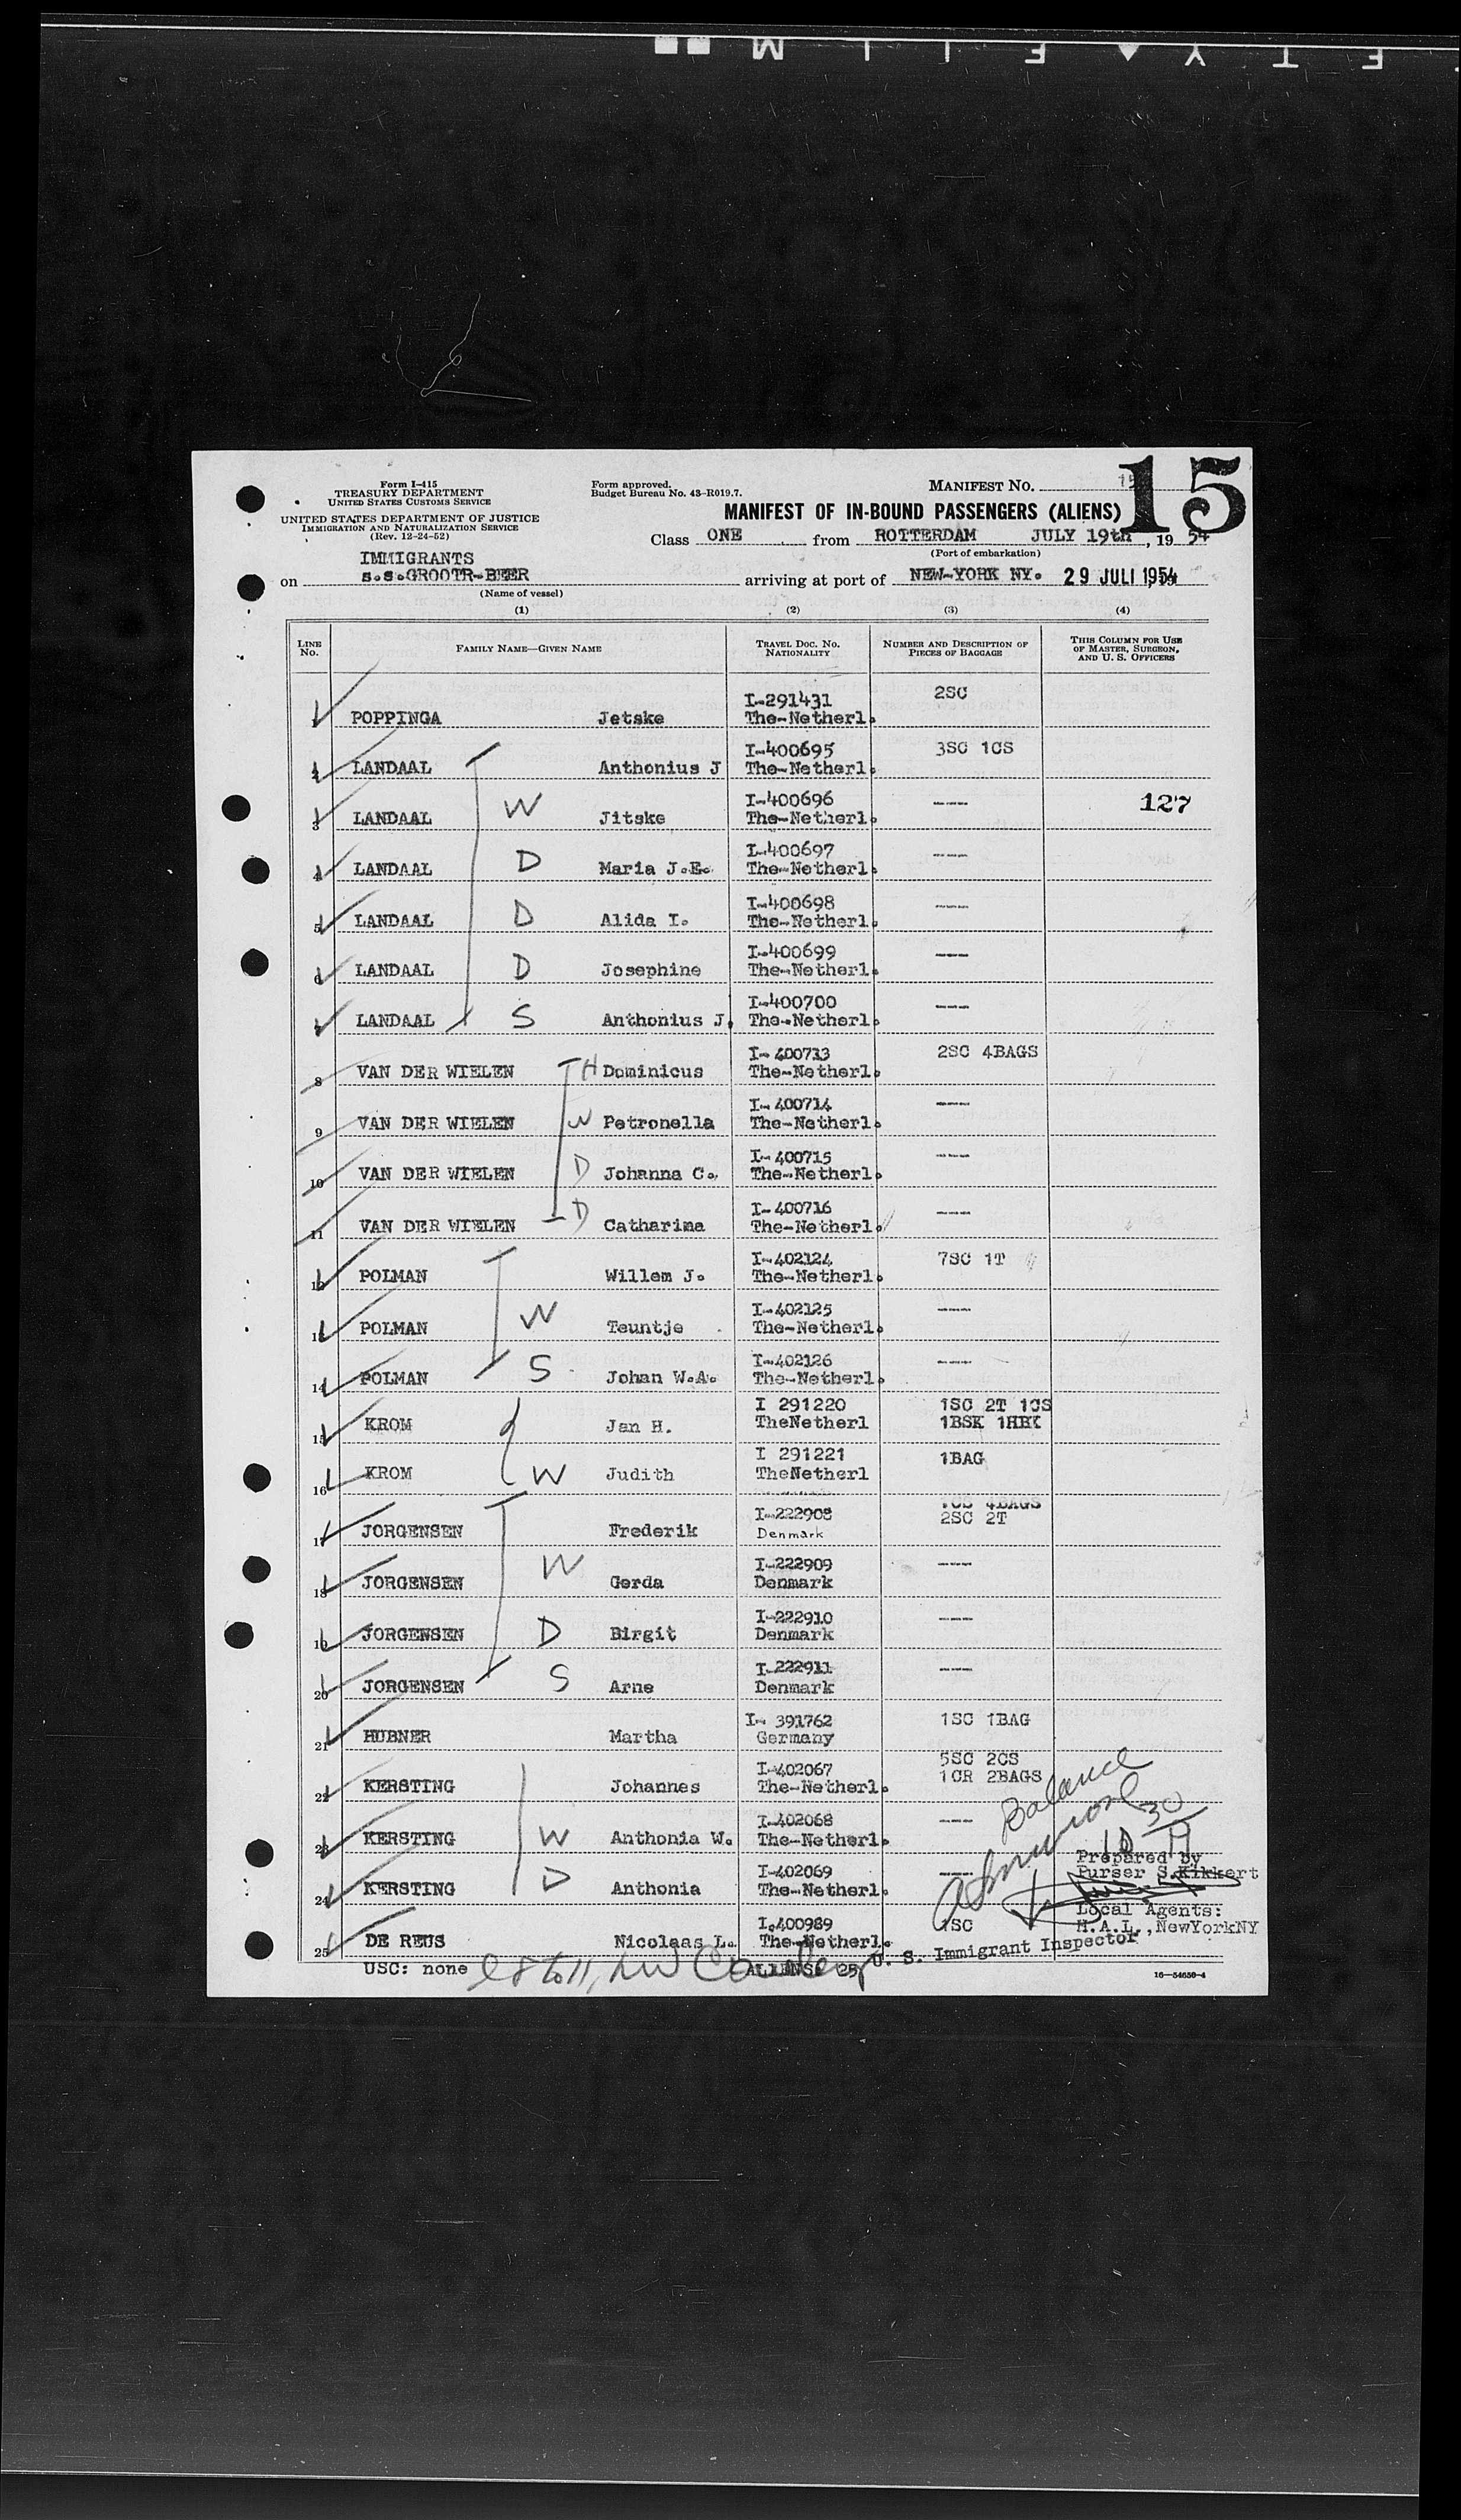 Form I-415
TREASURY DEPARTMENT
UNITED STATES CUSTOMS SERVICE
UNITED STATES DEPARTMENT OF JUSTICE
IMMIGRATION AND NATURALIZATION SERVICE
(Rev. 12-24-52)
Form approved.
Budget Bureau No. 43-R019.7.
MANIFEST NO. 15
15
MANIFEST OF IN-BOUND PASSENGERS (ALIENS)
Class ONE from ROTTERDAM JULY 19th, 1954
(Port of embarkation)
IMMIGRANTS
on s.s.GROOTR-BEER arriving at port of NEW-YORK NY. 29 JULI 1954
(Name of vessel)
(1) (2) (3) (4)
LINE NO. FAMILY NAME—GIVEN NAME TRAVEL DOC. NO. NATIONALITY NUMBER AND DESCRIPTION OF PIECES OF BAGGAGE THIS COLUMN FOR USE OF MASTER, SURGEON, AND U. S. OFFICERS
1 POPPINGA Jetske I-291431 The-Netherl. 2SC
2 LANDAAL Anthonius J I-400695 The-Netherl. 3SC 1CS
3 LANDAAL W Jitske I-400696 The-Netherl. ---- 127
4 LANDAAL D Maria J.E. I-400697 The-Netherl. ----
5 LANDAAL D Alida I. I-400698 The-Netherl. ----
6 LANDAAL D Josephine I-400699 The-Netherl. ----
7 LANDAAL S Anthonius J. I-400700 The-Netherl. ----
8 VAN DER WIELEN H Dominicus I-400713 The-Netherl. 2SC 4BAGS
9 VAN DER WIELEN W Petronella I-400714 The-Netherl. ----
10 VAN DER WIELEN D Johanna C. I-400715 The-Netherl. ----
11 VAN DER WIELEN D Catharima I-400716 The-Netherl. ----
12 POLMAN Willem J. I-402124 The-Netherl. 7SC 1T
13 POLMAN W Teuntje I-402125 The-Netherl. ----
14 POLMAN S Johan W.A. I-402126 The-Netherl. ----
15 KROM Jan H. I 291220 TheNetherl 1SC 2T 1CS 1BSK 1HBK
16 KROM W Judith I 291221 TheNetherl 1BAG
17 JORGENSEN Frederik I-222908 Denmark 1CS 4BAGS 2SC 2T
18 JORGENSEN W Gerda I-222909 Denmark ----
19 JORGENSEN D Birgit I-222910 Denmark ----
20 JORGENSEN S Arne I-222911 Denmark ----
21 HUBNER Martha I-391762 Germany 1SC 1BAG
22 KERSTING Johannes I-402067 The-Netherl. 5SC 2CS 1CR 2BAGS
23 KERSTING W Anthonia W. I-402068 The-Netherl. ----
24 KERSTING D Anthonia I-402069 The-Netherl. ----
25 DE REUS Nicolaas L. I-400989 The-Netherl. 1SC
Balance
30
Prepared by
Purser S.Kikkert
Local Agents:
H.A.L.,NewYorkNY
U. S. Immigrant Inspector
USC: none ALIENS: 25
16—54650-4